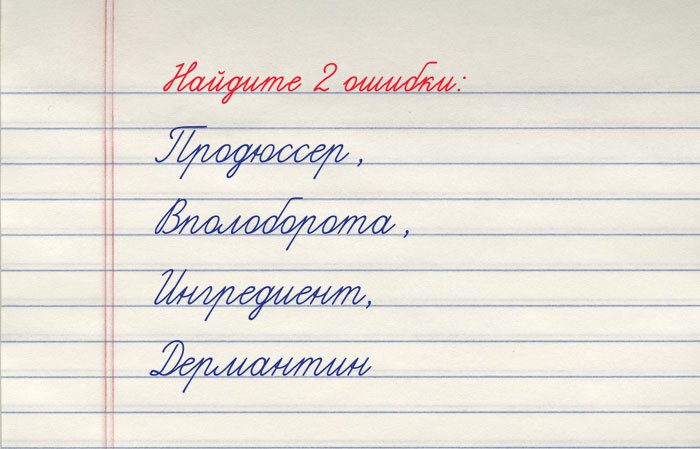 Найдите 2 ошибки:
Продюссер,
Вполоборота,
Ингредиент,
Дермантин